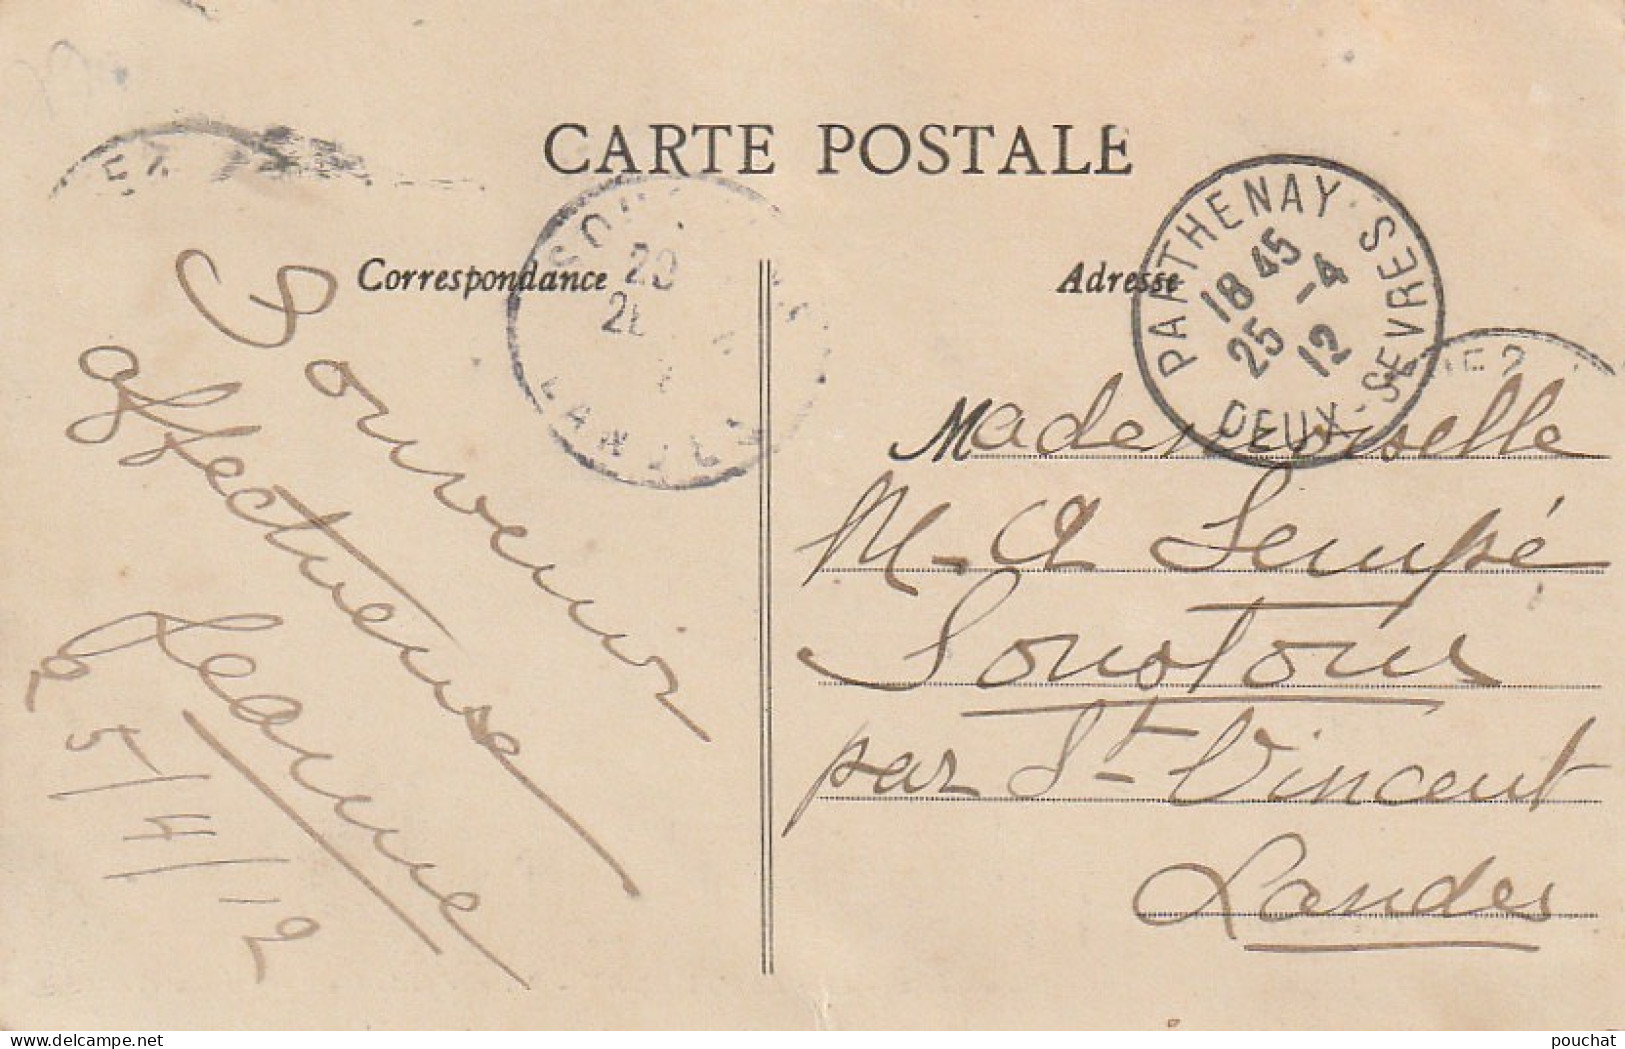 CARTE POSTALE
Correspondance
Adresse
PARTHENAY
18 45
25 -4
12
DEUX-SEVRES
20
LANDES
Souvenir
affectueuse
Jeanne
25/4/12
Mademoiselle
M-A Sempé
Soustons
par St-Vincent
Landes
www.delcampe.net
pouchat